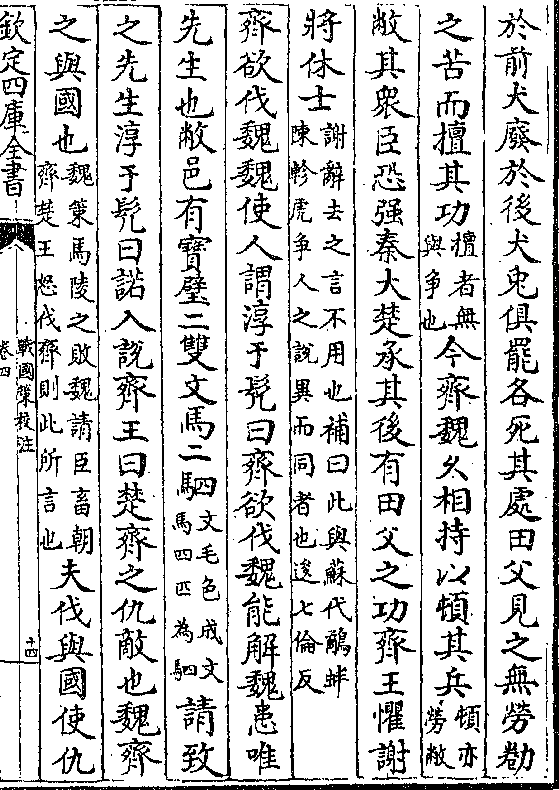 於前犬廢於後犬兎俱罷各死其處田父見之無勞勌
之苦而擅其功擅者無與爭也今齊魏久相持以頓其兵頓亦勞敝
敝其衆臣恐强秦大楚承其後有田父之功齊王懼謝
將休士謝辭去之言不用也補曰此與蘇代鷸蚌陳軫虎爭人之說異而同者也逡七倫反
齊欲伐魏魏使人謂淳于髡曰齊欲伐魏能解魏患唯
先生也敝邑有寶璧二雙文馬二駟文毛色成文馬四匹為駟請致
之先生淳于髡曰諾入說齊王曰楚齊之仇敵也魏齊
之與國也魏策馬陵之敗魏請臣畜朝齊楚王怒伐齊則此所言也夫伐與國使仇
欽定四庫全書
戰國策校注
卷四
十四